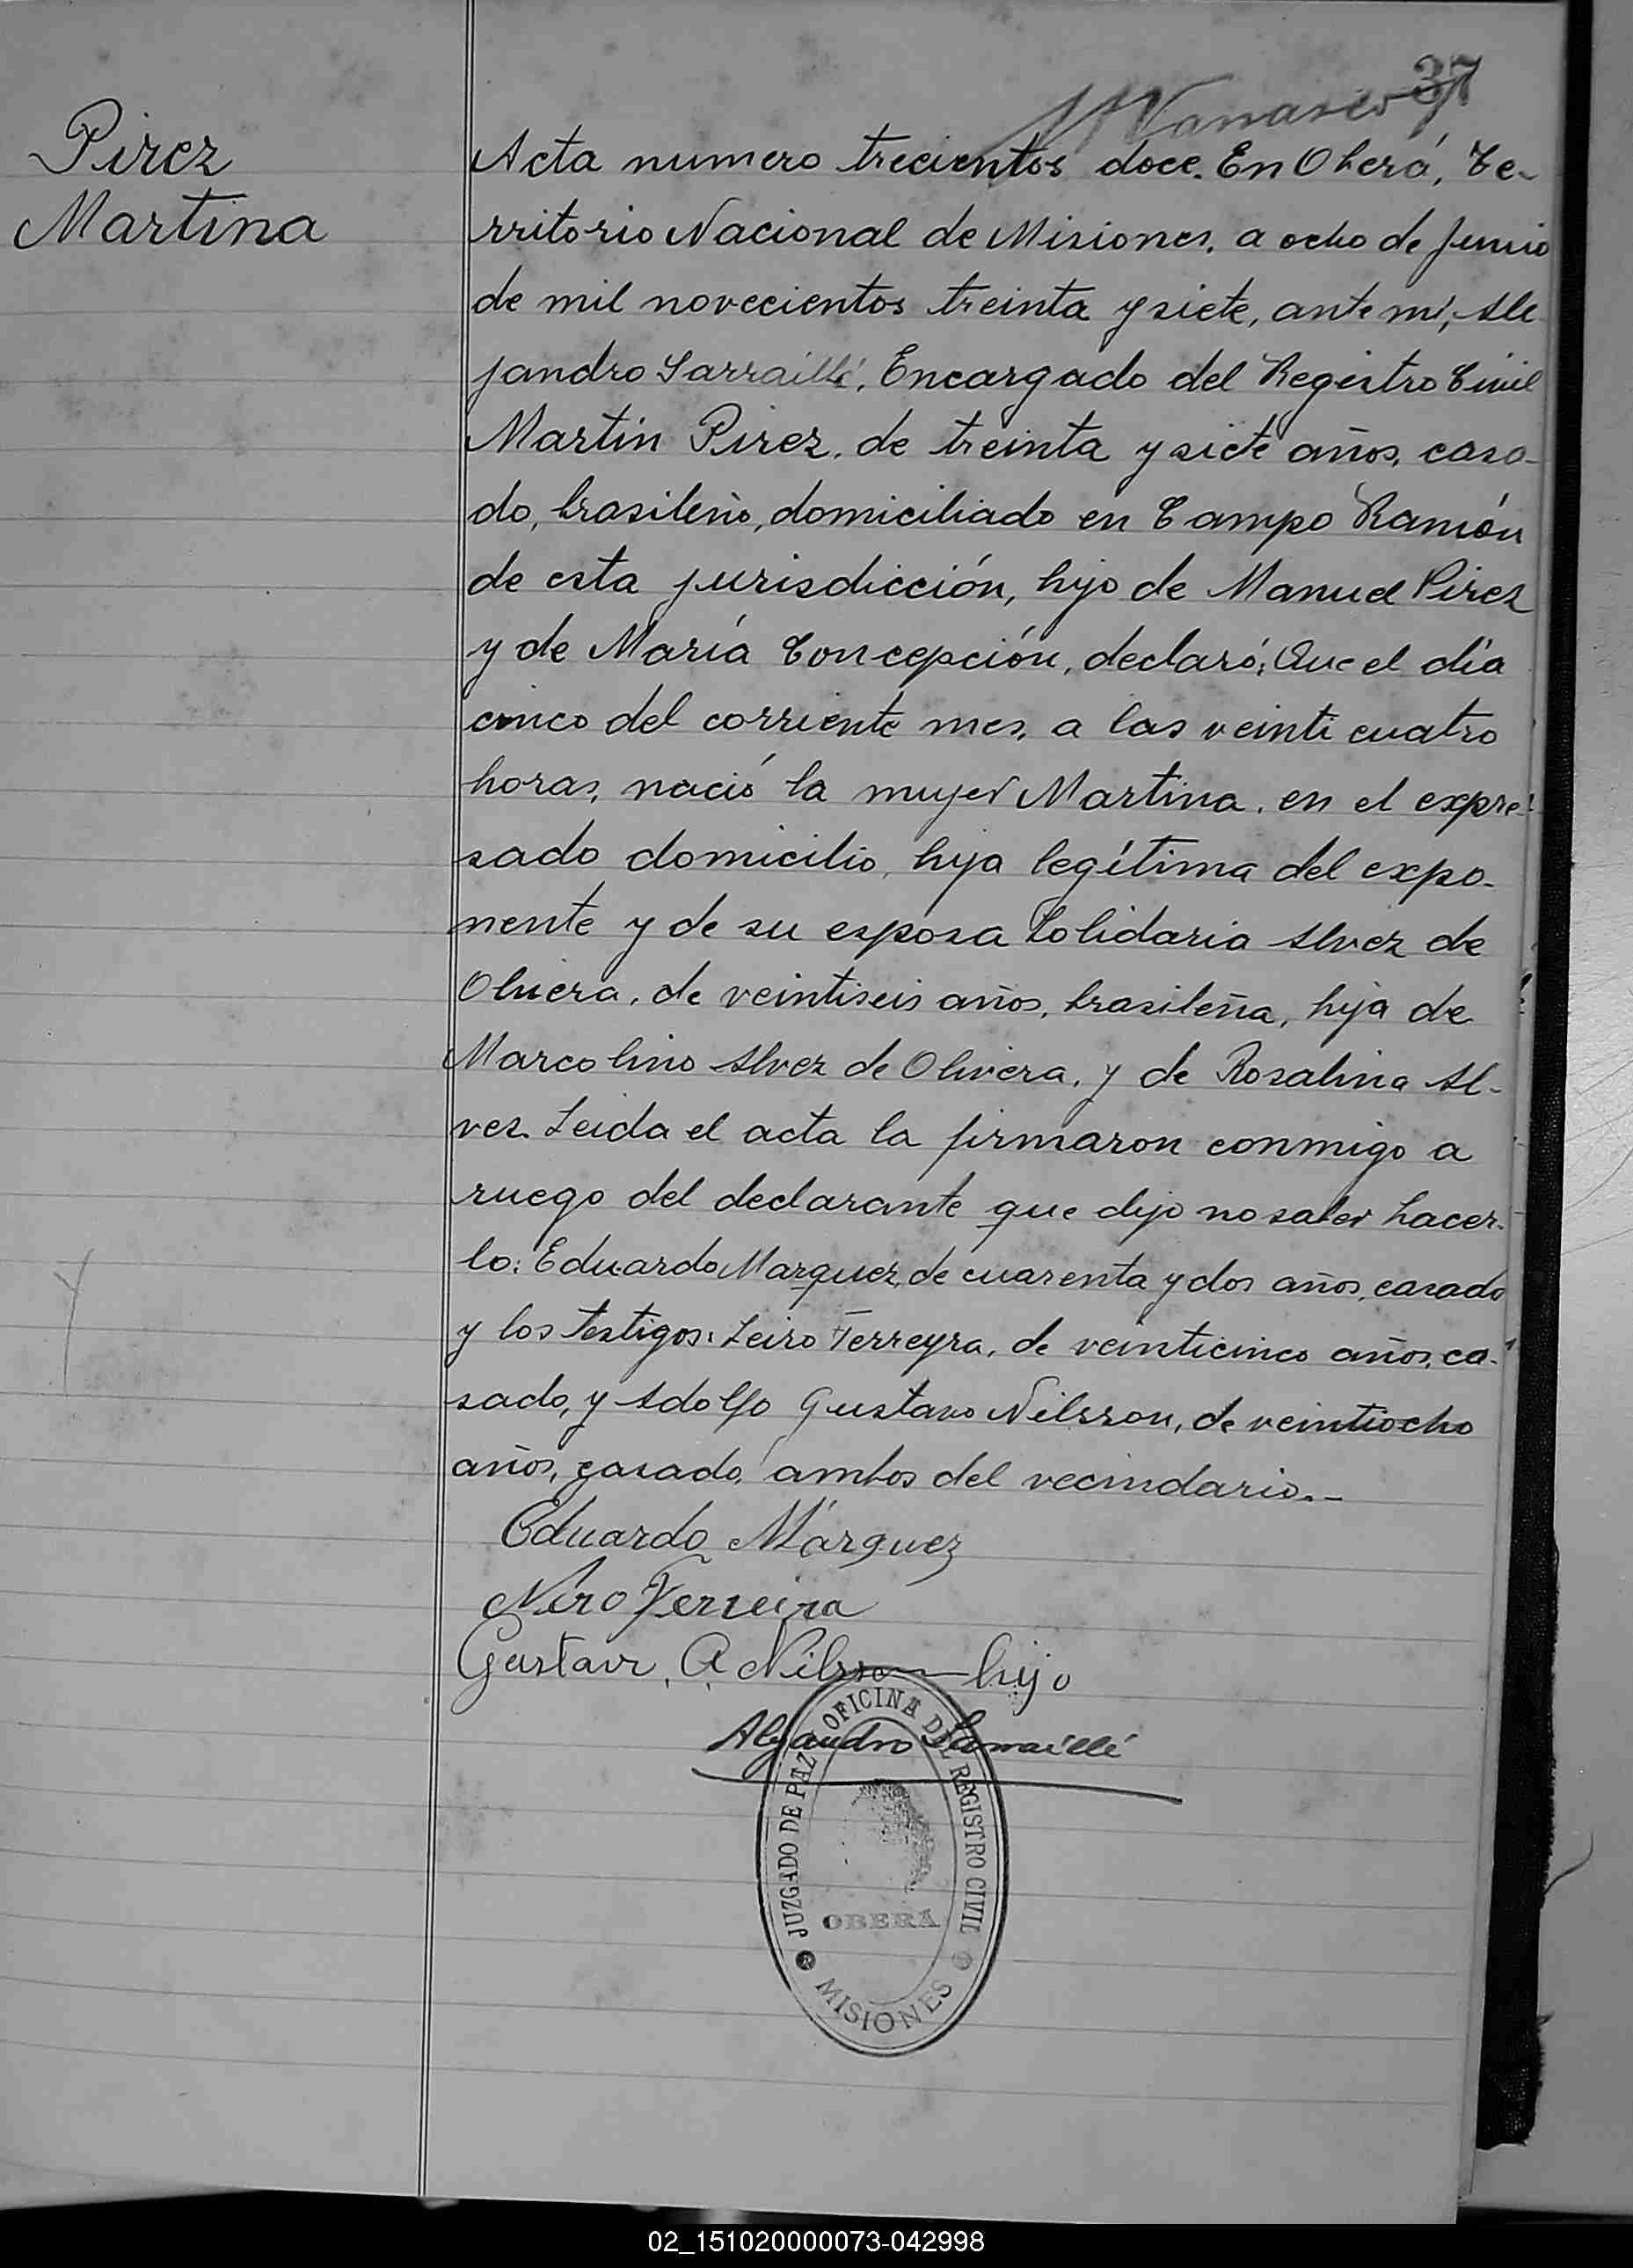 37
Pirez
Martina
Acta numero trecientos doce. En Oberá, Te-
rritorio Nacional de Misiones, a ocho de Junio
de mil novecientos treinta y siete, ante mí, Ale
jandro Sarraillé, Encargado del Registro Civil
Martin Pirez, de treinta y siete años, casa-
do, brasileño, domiciliado en Campo Ramón
de esta jurisdicción, hijo de Manuel Pirez
y de María Concepción, declaró: Que el día
cinco del corriente mes, a las veinti cuatro
horas, nació la mujer Martina, en el expre-
sado domicilio, hija legítima del expo-
nente y de su esposa Solidaria Alvez de
Olivera, de veintiseis años, brasileña, hija de
Marcolino Alvez de Olivera, y de Rosalina Al-
vez. Leida el acta la firmaron conmigo a
ruego del declarante que dijo no saber hacer-
lo: Eduardo Marquez, de cuarenta y dos años, casado
y los testigos: Leiro Ferreyra, de veinticinco años, ca-
sado, y Adolfo Gustavo Nilsson, de veintiocho
años, casado, ambos del vecindario.-
Eduardo Márquez
Ferreira
Gustav. A. Nilsson hijo
Alejandro Sarraillé
JUZGADO DE PAZ OFICINA DEL REGISTRO CIVIL
OBERA
MISIONES
02_151020000073-042998